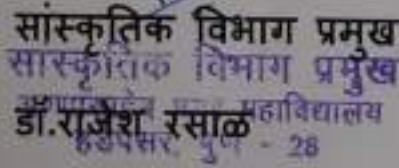 सांस्कृतिक विभाग प्रमुख
सांस्कृतिक विभाग प्रमुख
महाविद्यालय
डॉ.राजेश रसाळ
हडपसर, पुणे - 28